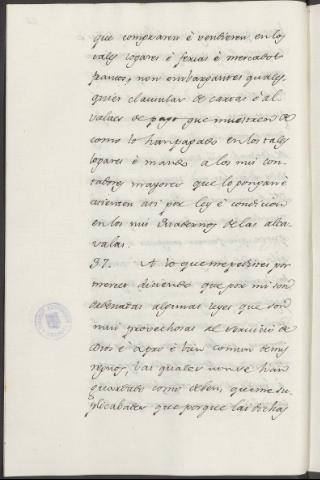 que compraren é vendieren en los
tales logares é ferias é mercados
francos, non embargantes quales
quier clausulas de cartas é al
valaes de pago que muestren de
como lo han pagado en los tales
logares é mando a los mis con
tadores mayores que lo pongan é
asienten asi por ley é condicion
en los mis Quadernos de las alca
valas.
37. A lo que me pedistes por
merced diciendo que por mi son
ordenadas algunas leyes que son
mui provechosas al servicio de
Dios é a pro é bien comun de mis
regnos, las quales non se han
guardado como deben, que me su
plicabades que porque las dichas